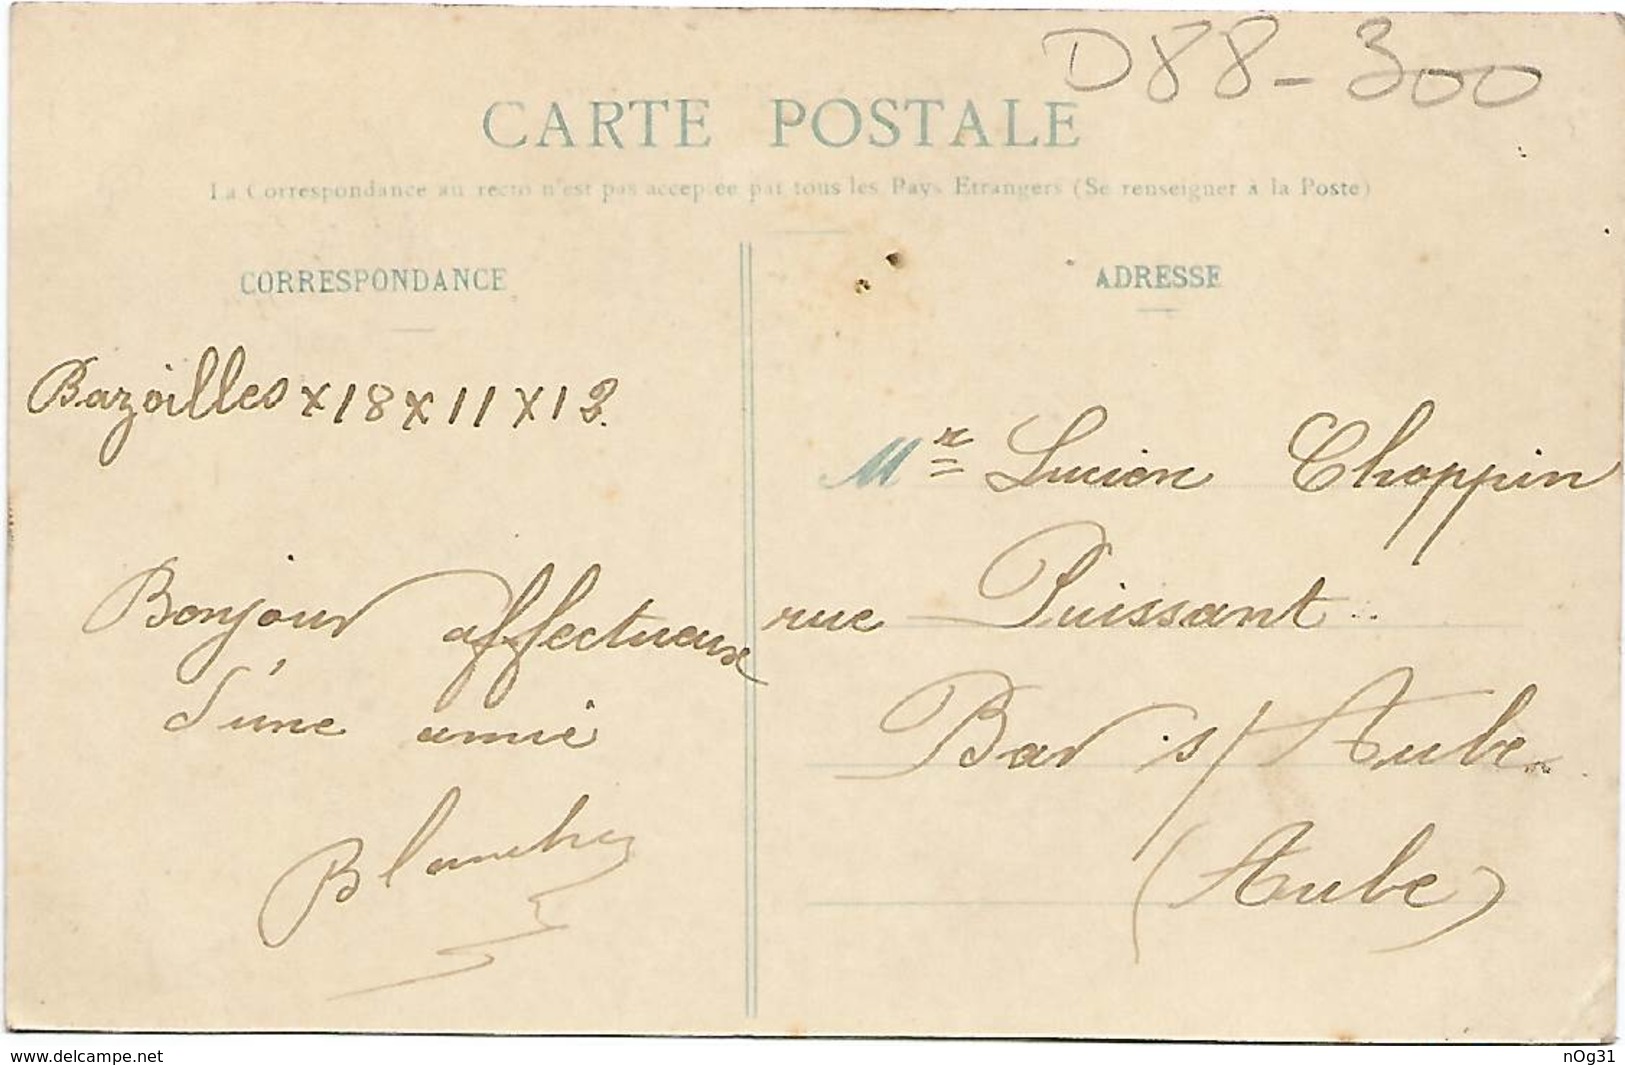 D88-300
CARTE POSTALE
La Correspondance au recto n'est pas acceptée par tous les Pays Etrangers (Se renseigner à la Poste)
CORRESPONDANCE
Bazoilles x 18 x 11 x 13.
Bonjour affectueux
d'une amie
Blanche
ADRESSE
Mr Lucien Choppin
rue Puissant
Bar s/ Aube
(Aube)
www.delcampe.net
nOg31